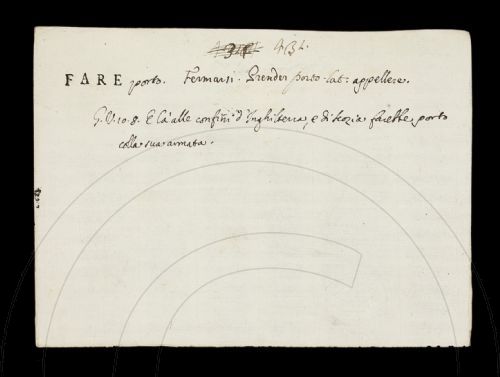 434.
FARE porto. Fermarsi. Prender porto. lat: appellere.
G. V. 10. 8. E là alle confini d'Inghilterra, e di Scozia farebbe porto
colla sua armata.